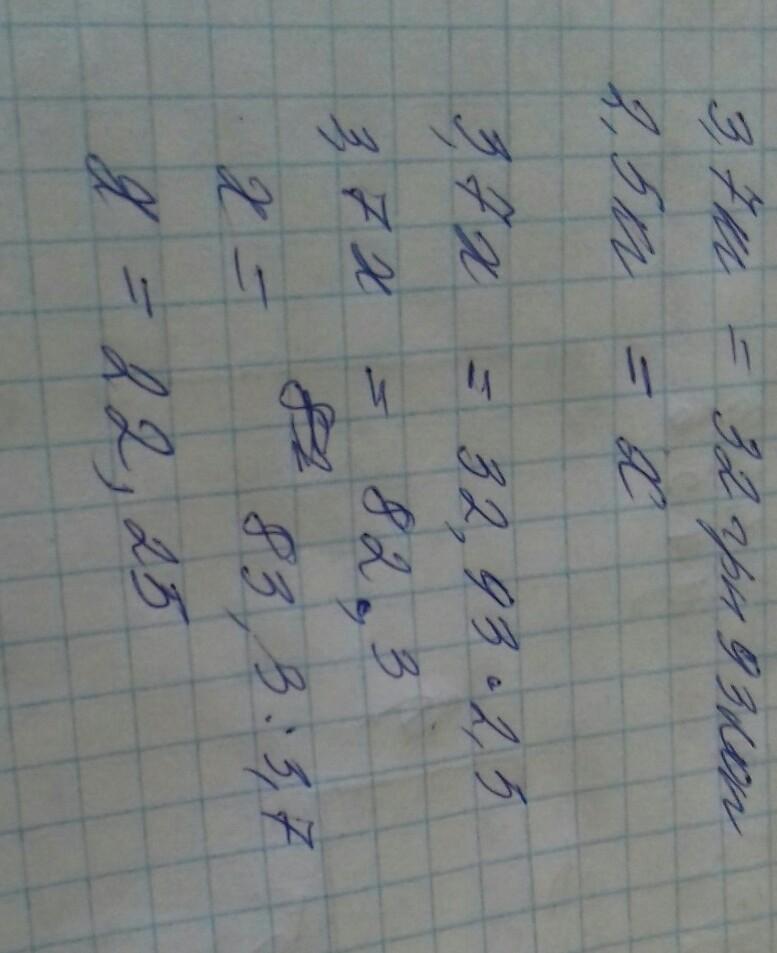 3,7м = 32 грн 93 коп
2,5м = x
3,7x = 32,93 · 2,5
3,7x = 82,3
x = 83,3 : 3,7
x = 22,25